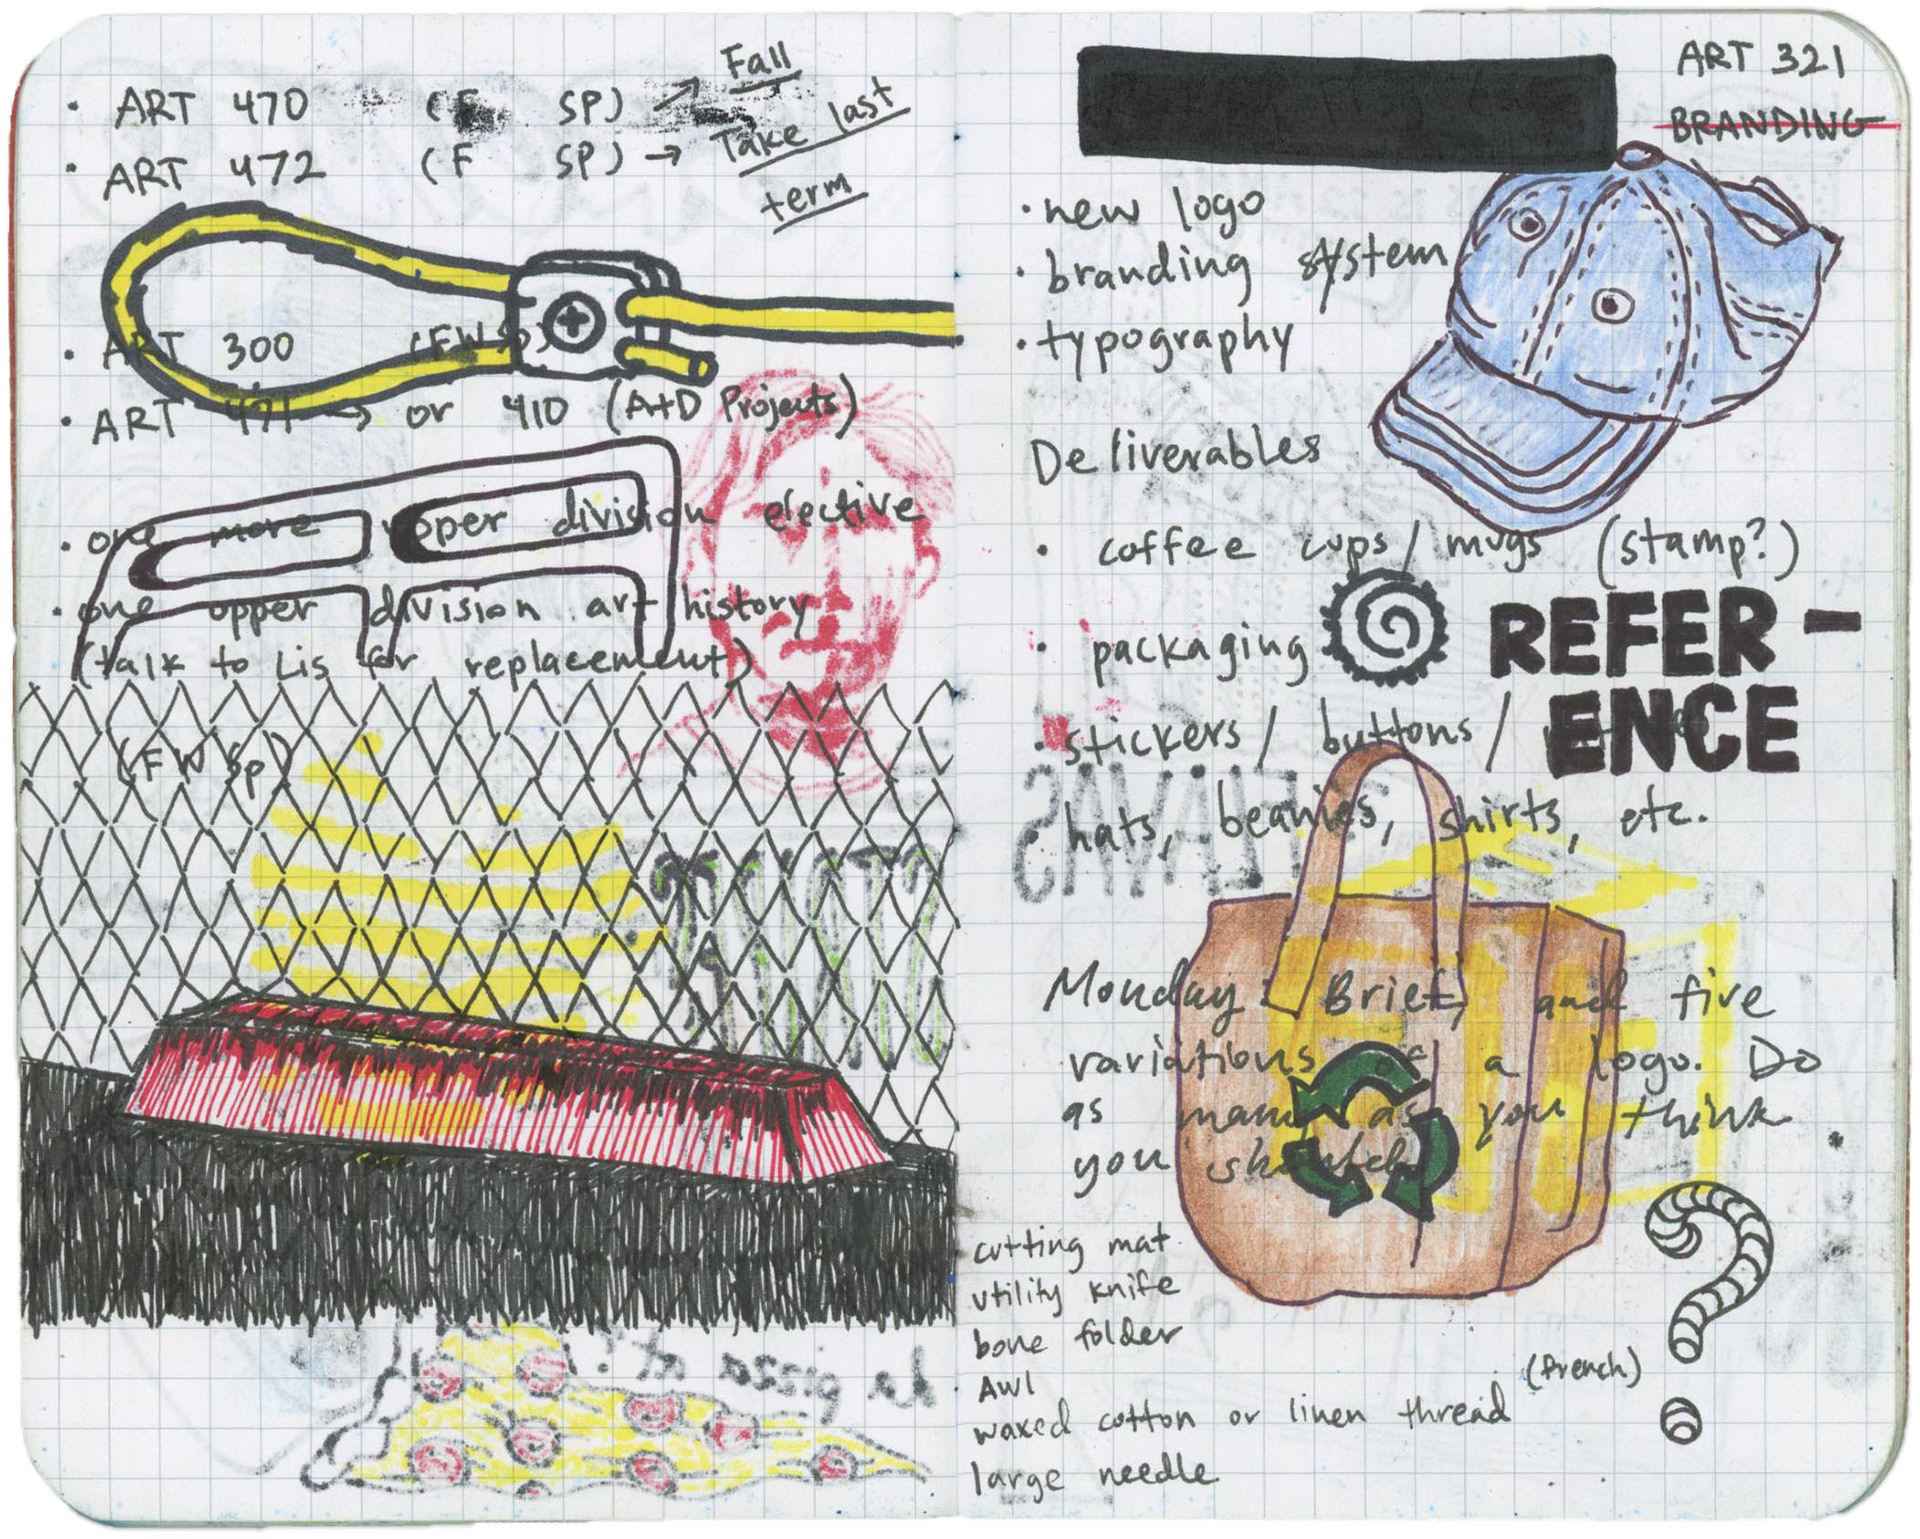 • ART 470 (F SP) → Fall
• ART 472 (F SP) → Take last
term
• ART 300 (F W Sp)
• ART 471 → or 410 (A+D Projects)
• one more upper division elective
• one upper division art history
(talk to Lis for replacement)
(F W Sp)
ART 321
BRANDING
• new logo
• branding system
• typography
Deliverables
• coffee cups / mugs (stamp?)
• packaging
REFER-
ENCE
• stickers / buttons /
• hats, beanies, shirts, etc.
Monday: Brief, and five
variations of a logo. Do
as many as you think
you should.
cutting mat
utility knife
bone folder
Awl
waxed cotton or linen thread (french)
large needle
?